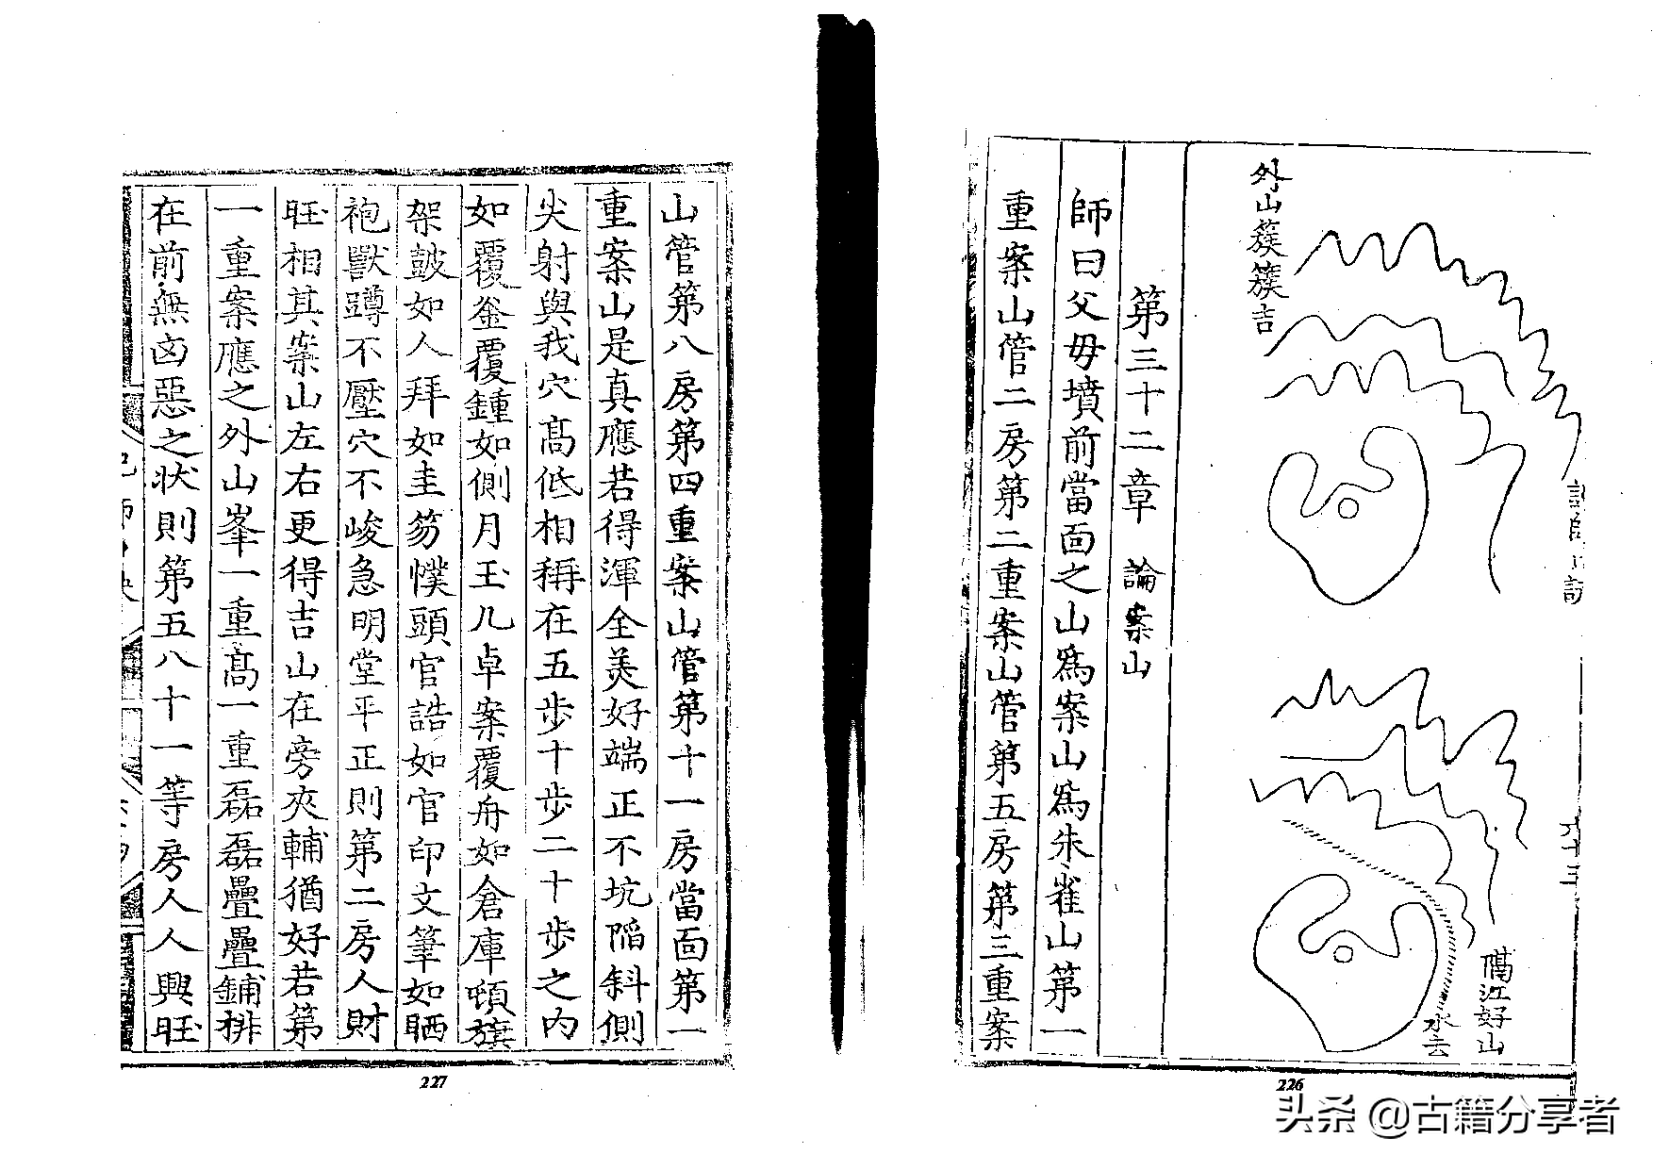 外山簇簇吉
隔江好山
水去
第三十二章　論案山
師曰父毋墳前當面之山為案山為朱雀山第一
重案山管二房第二重案山管第五房第三重案
226
山管第八房第四重案山管第十一房當面第一
重案山是真應若得渾全美好端正不坑陷斜側
尖射與我穴高低相稱在五步十步二十步之內
如覆釜覆鍾如側月玉几卓案覆舟如倉庫頓旗
架鼓如人拜如圭笏幞頭官誥如官印文筆如晒
袍獸蹲不壓穴不峻急明堂平正則第二房人財
旺相其案山左右更得吉山在旁夾輔猶好若第
一重案應之外山峯一重高一重磊磊疊疊鋪排
在前無凶惡之状則第五八十一等房人人興旺
227
头条 @古籍分享者